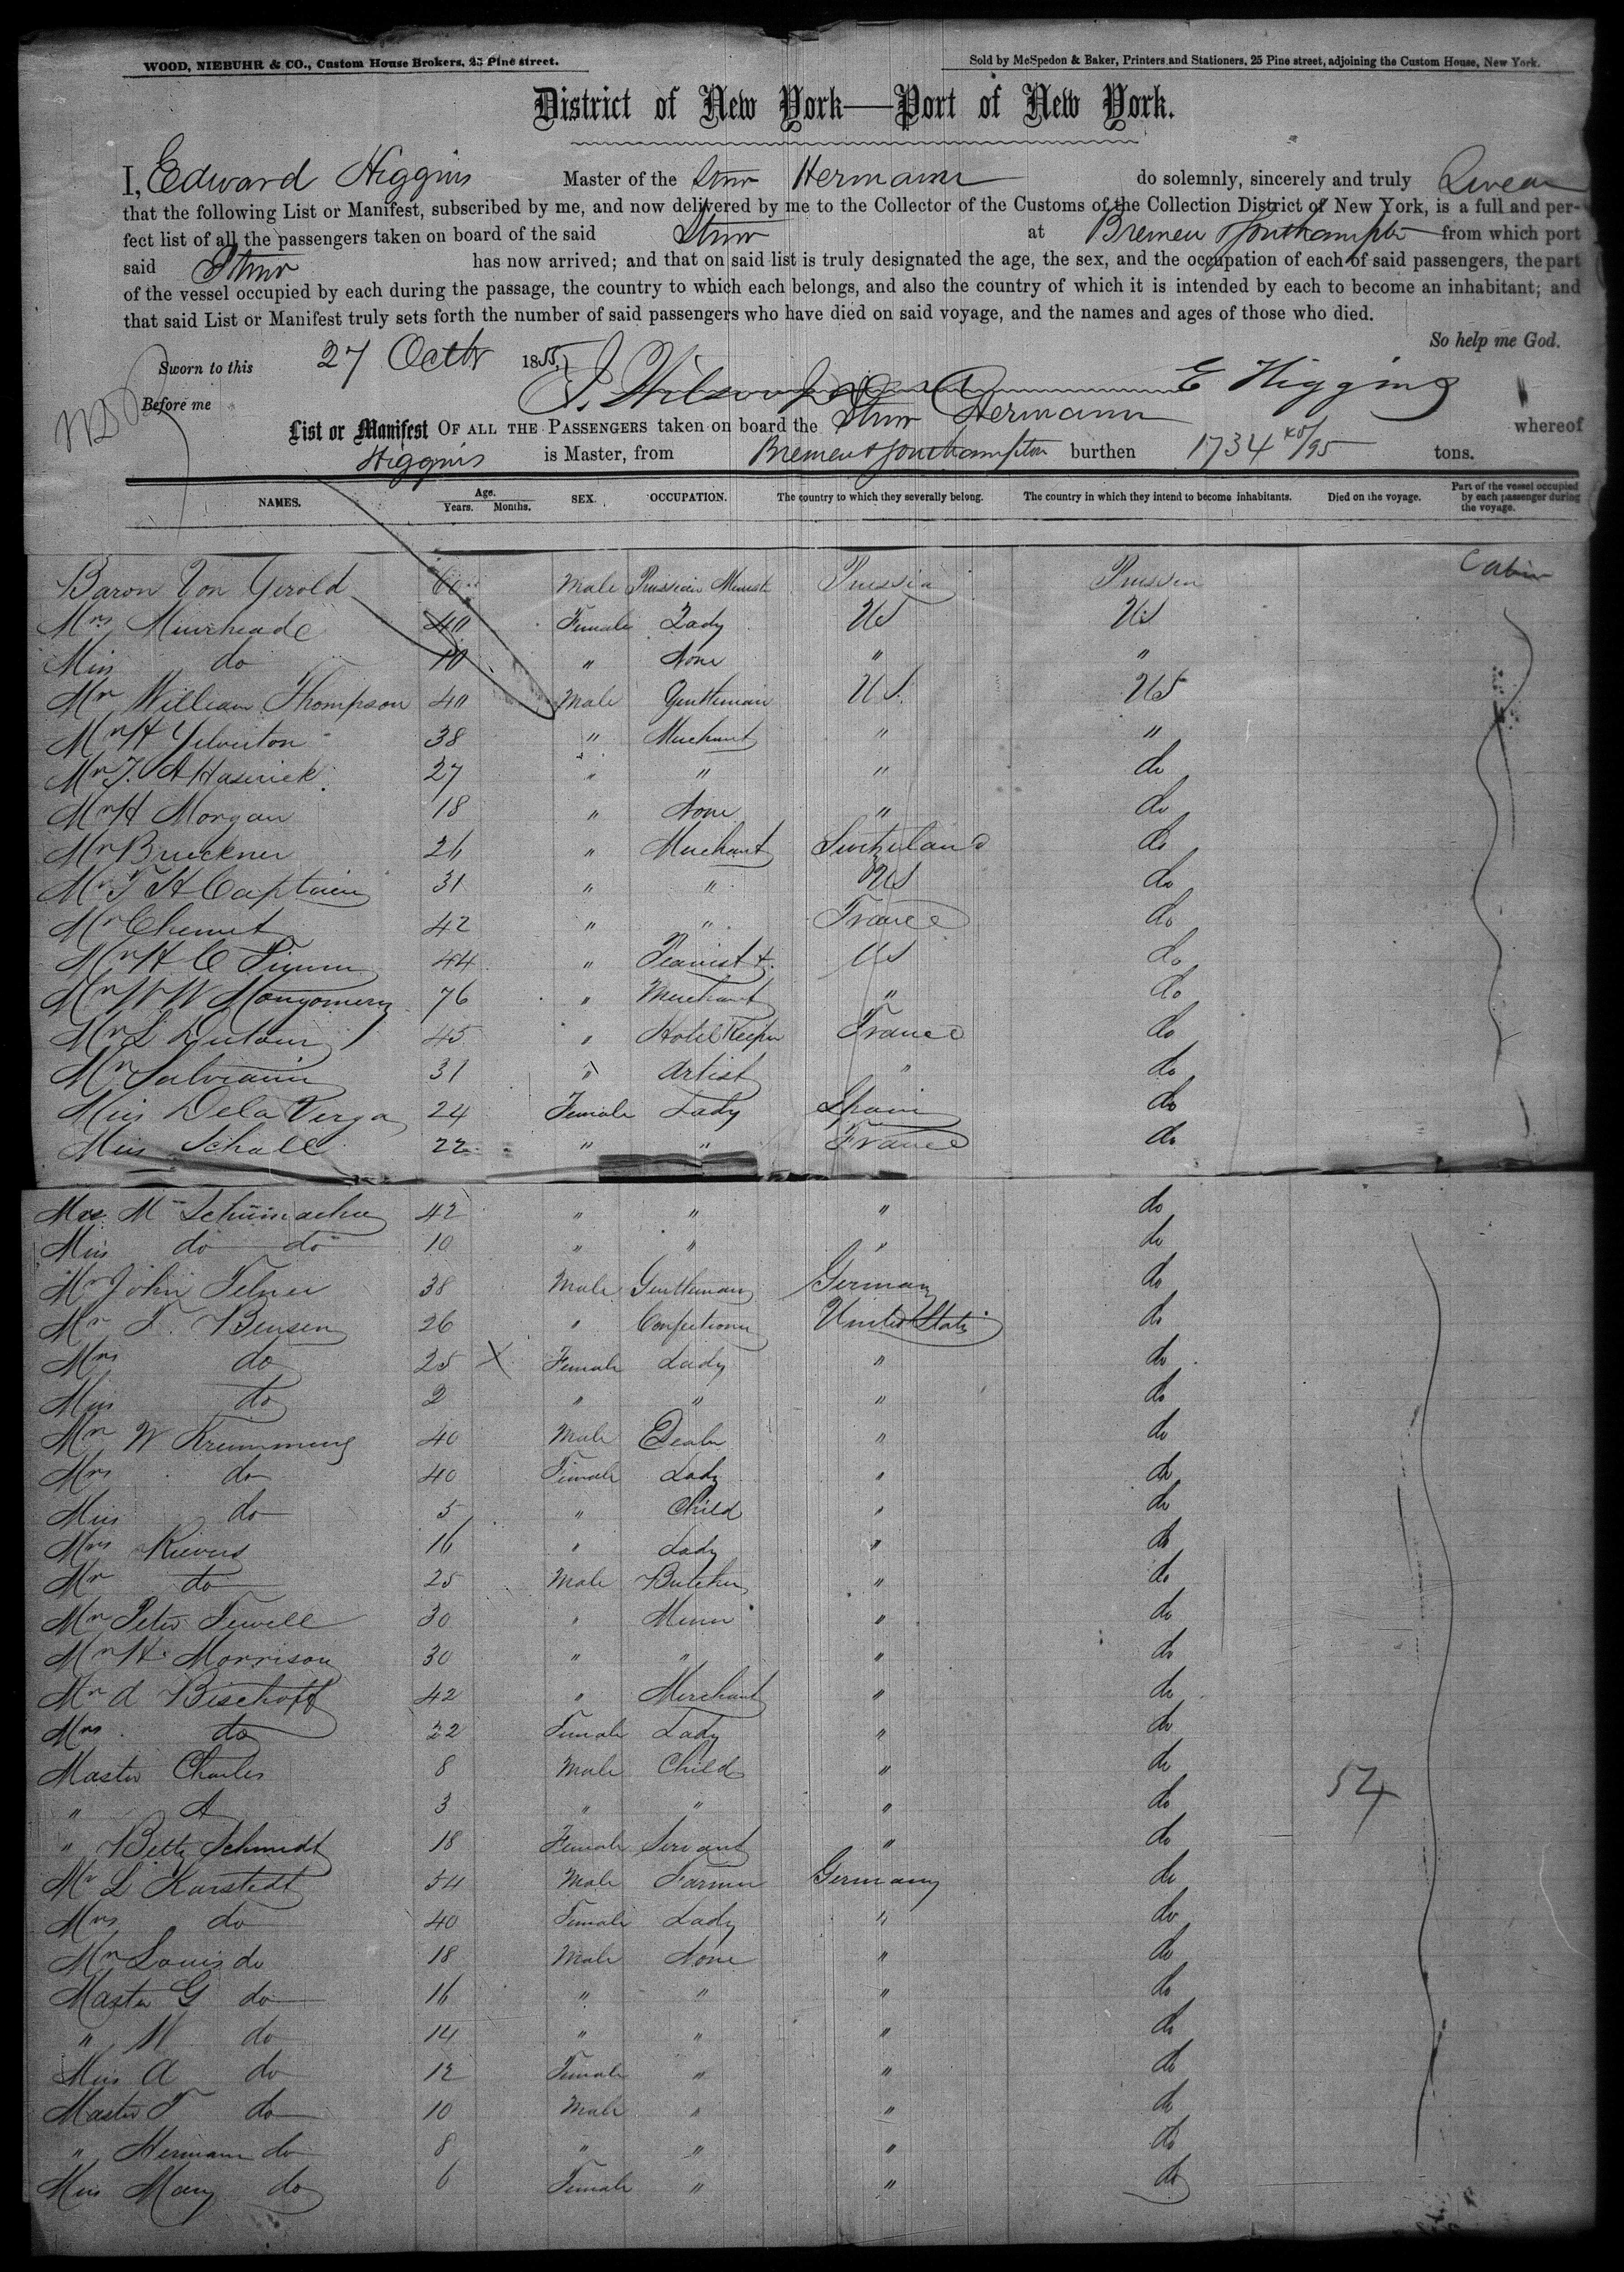 WOOD, NIEBUHR & CO., Custom House Brokers, 25 Pine street.
Sold by McSpedon & Baker, Printers and Stationers, 25 Pine street, adjoining the Custom House, New York.
District of New York—Port of New York.
I, Edward Higgins Master of the Stmr Hermann do solemnly, sincerely and truly Swear
that the following List or Manifest, subscribed by me, and now delivered by me to the Collector of the Customs of the Collection District of New York, is a full and per-
fect list of all the passengers taken on board of the said Stmr at Bremen & Southampton from which port
said Stmr has now arrived; and that on said list is truly designated the age, the sex, and the occupation of each of said passengers, the part
of the vessel occupied by each during the passage, the country to which each belongs, and also the country of which it is intended by each to become an inhabitant; and
that said List or Manifest truly sets forth the number of said passengers who have died on said voyage, and the names and ages of those who died.
So help me God.
Sworn to this 27 Octbr 1855, E Higgins
Before me
List or Manifest OF ALL THE PASSENGERS taken on board the Stmr Hermann whereof
Higgins is Master, from Bremen & Southampton burthen 1734 45/95 tons.
NAMES. Age. Years. Months. SEX. OCCUPATION. The country to which they severally belong. The country in which they intend to become inhabitants. Died on the voyage. Part of the vessel occupied by each passenger during the voyage.
Baron Von Gerold 60 Male Prussian Minister Prussia Prussia Cabin
Mrs Muirheade 40 Female Lady US US
Miss do 10 " None " "
Mr William Thompson 40 Male Gentleman US. US
Mr H Yelverton 38 " Merchant " "
Mr J. A 27 " " " do
Mr H Morgan 18 " None " do
Mr Brueckner 26 " Merchant Switzerland do
Mr F H Captain 31 " " US do
Mr 42 " " France do
Mr H C Timm 44 " Pianist US do
Mr W W Montgomery 76 " Merchant " do
Mr L 45 " Hotel Keeper France do
Mr 31 " Artist " do
Miss Dela Verga 24 Female Lady Spain do
Miss Schall 22 " " France do
Mrs M Schumacher 42 " " " do
Miss do do 10 " " " do
Mr John 38 Male Gentleman Germany do
Mr F. Bensen 26 " Confectioner United States do
Mrs do 25 X Female Lady " do
Miss do 2 " " " do
Mr W Krumming 40 Male Dealer " do
Mrs do 40 Female Lady " do
Miss do 5 " Child " do
Mrs Rievers 16 " Lady " do
Mr do 25 Male Butcher " do
Mr Peter Tewell 30 " Miner " do
Mr H. Morrison 30 " " " do
Mr A Bischoff 42 " Merchant " do
Mrs do 22 Female Lady " do
Master Charles 8 Male Child " do
" A 3 " " " do 54
" Betty Schmidt 18 Female Servant " do
Mr L Karstedt 54 Male Farmer Germany do
Mrs do 40 Female Lady " do
Mr Louis do 18 Male None " do
Master G do 16 " " " do
" W do 14 " " " do
Miss A do 12 Female " " do
Master F do 10 Male " " do
" Hermann do 8 " " " do
Miss Mary do 6 Female " " do